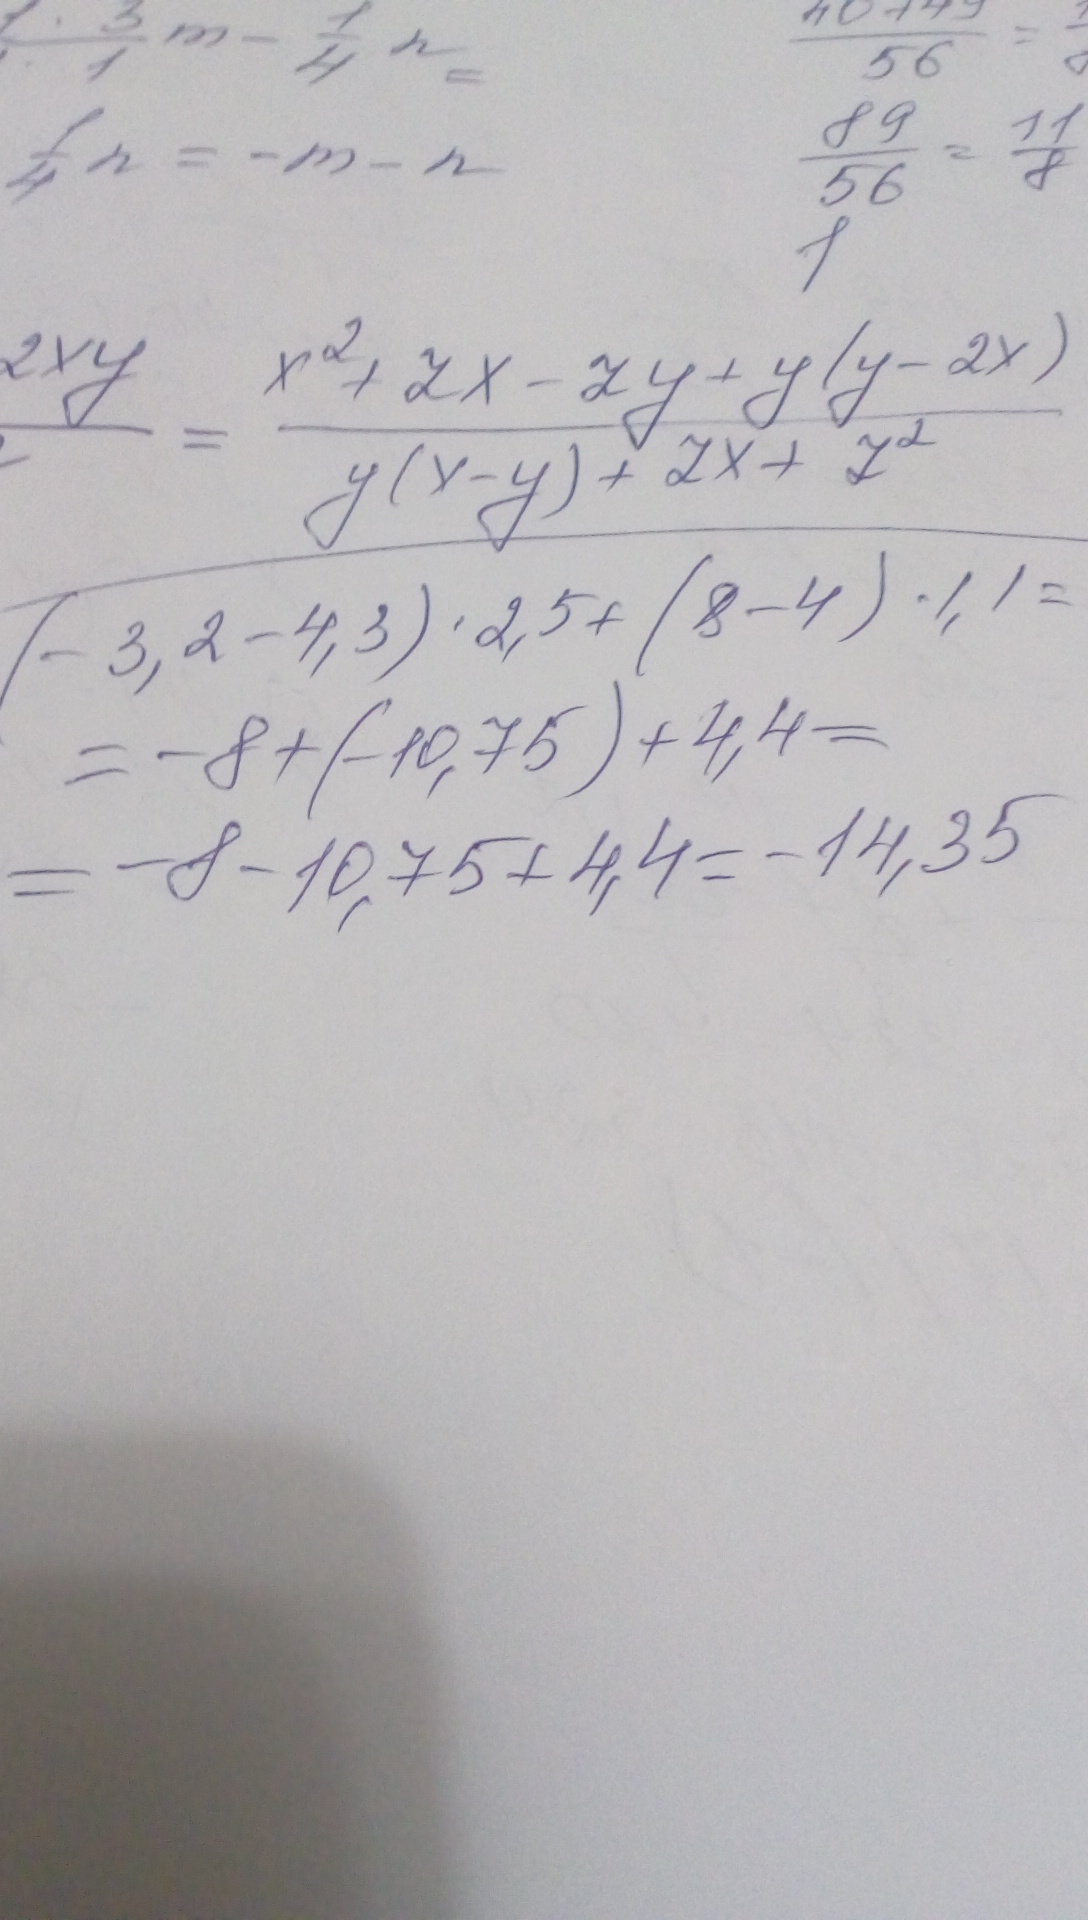 3/1 m - 1/4 n =
1/4 n = -m - n
40+49/56 =
89/56 = 11/8
1
2xy = x²+zx-zy+y(y-2x) / y(x-y)+zx+z²
(-3,2-4,3)·2,5+(8-4)·1,1=
=-8+(-10,75)+4,4=
=-8-10,75+4,4=-14,35